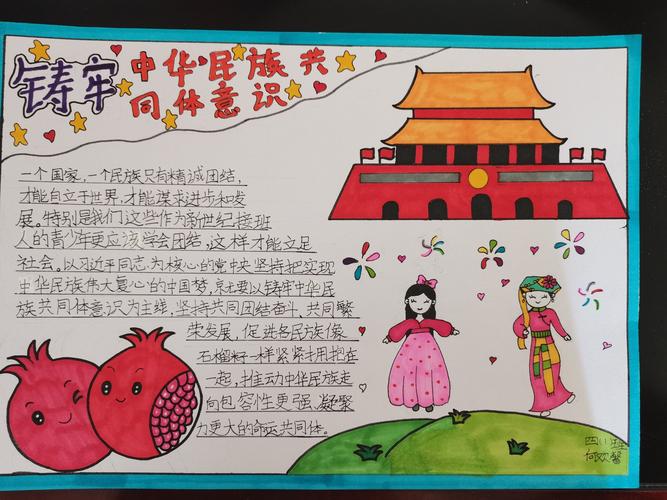 铸牢
中华民族共
同体意识
一个国家，一个民族只有精诚团结，
才能自立于世界，才能谋求进步和发
展。特别是我们这些作为新世纪接班
人的青少年更应该学会团结，这样才能立足
社会。以习近平同志为核心的党中央坚持把实现
中华民族伟大复心的中国梦，就要以铸牢中华民
族共同体意识为主线，坚持共同团结奋斗、共同繁
荣发展，促进各民族像
石榴籽一样紧紧拥抱在
一起，推动中华民族走
向包容性更强、凝聚
力更大的命运共同体。
四(1)班
何欢馨